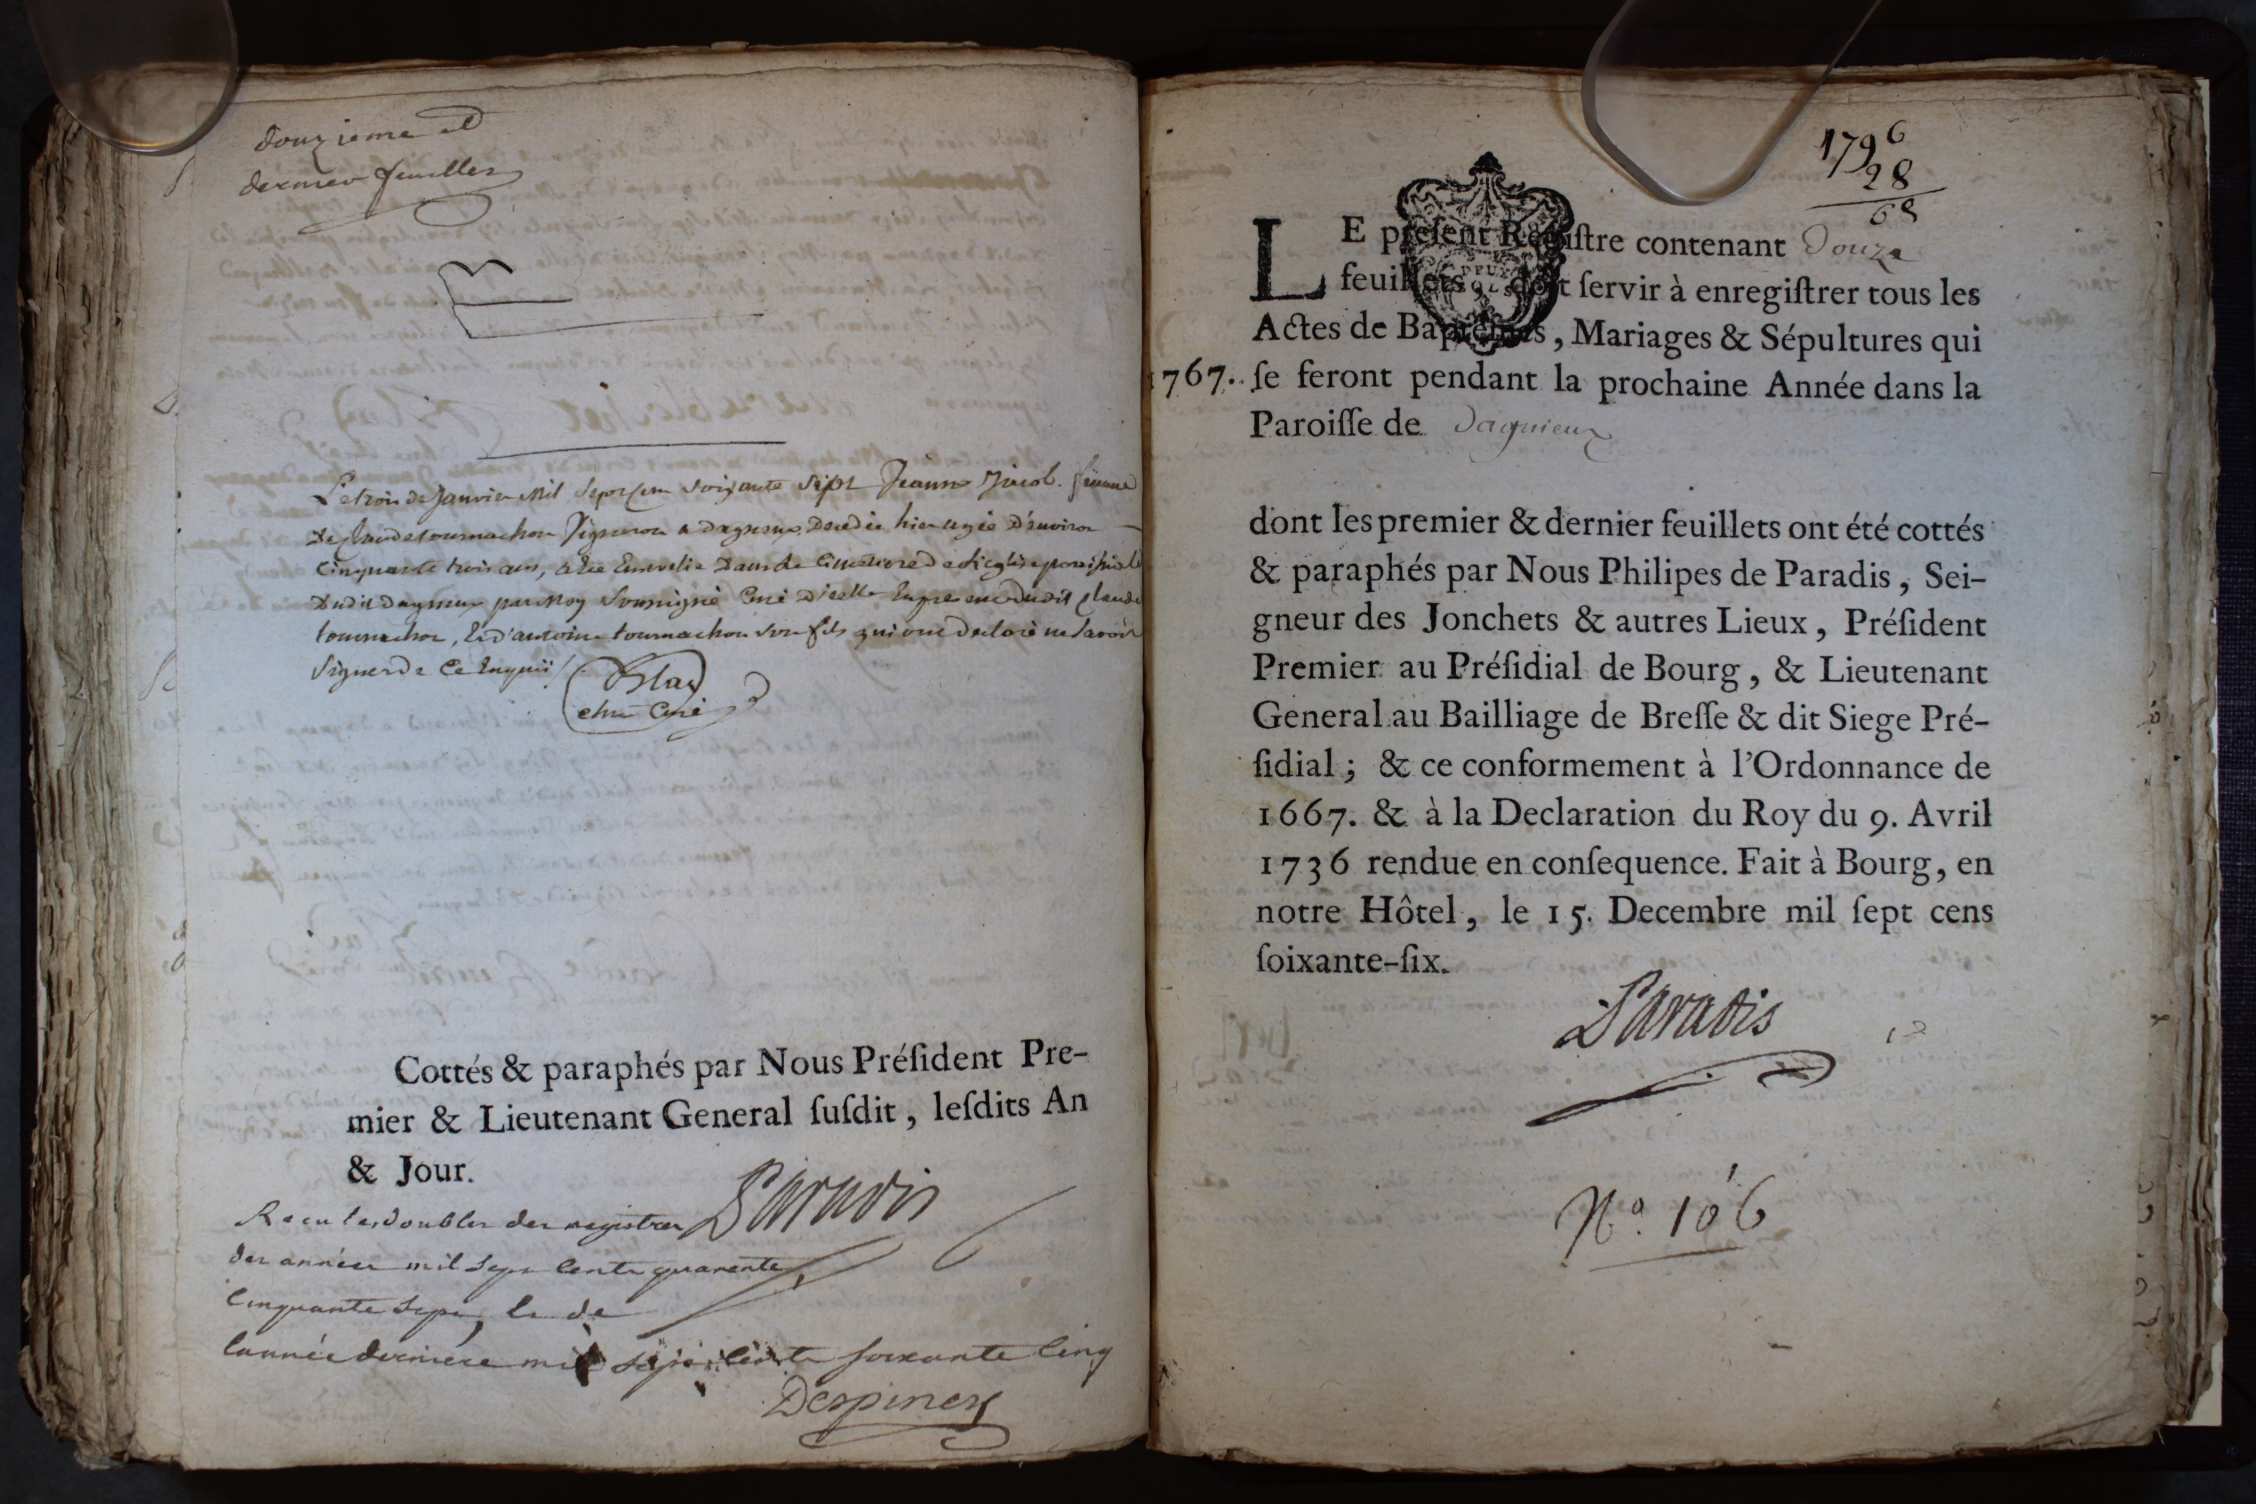 douzieme et
dernier feuillet
Le trois de Janvier Mil Sept Cem soixante sept Jeanne Jacob femme
De Claude tournachon Vigneron a Dagneux Decedée hier agée D'environ
Cinquante trois ans, a été Enevelie Dans le Cimetiere de l'eglise paroissiale
Dudit Dagneux par Moy Soussigné Curé D'icelle En presence Dudit Claude
tournachon, Et d'antoine tournachon son fils qui ont Declaré ne Savoir
Signer de Ce Enquis
Curé
Cottés & paraphés par Nous Préſident Pre-
mier & Lieutenant General ſuſdit, leſdits An
& Jour.
Paradis
Recu les doubles des registres
des années mil sept Cents quarente
Cinquante sept, de
l'année derniere mil sept Cents soixante Cinq
Despiney
1796
28
68
LE preſent Regiſtre contenant Douze
feuillets, doit ſervir à enregiſtrer tous les
Actes de Baptêmes, Mariages & Sépultures qui
1767. ſe feront pendant la prochaine Année dans la
Paroiſſe de Dagnieux
dont les premier & dernier feuillets ont été cottés
& paraphés par Nous Philipes de Paradis, Sei-
gneur des Jonchets & autres Lieux, Préſident
Premier au Préſidial de Bourg, & Lieutenant
General au Bailliage de Breſſe & dit Siege Pré-
ſidial; & ce conformement à l'Ordonnance de
1667. & à la Declaration du Roy du 9. Avril
1736 rendue en conſequence. Fait à Bourg, en
notre Hôtel, le 15. Decembre mil ſept cens
ſoixante-ſix.
Paradis
N.º 106